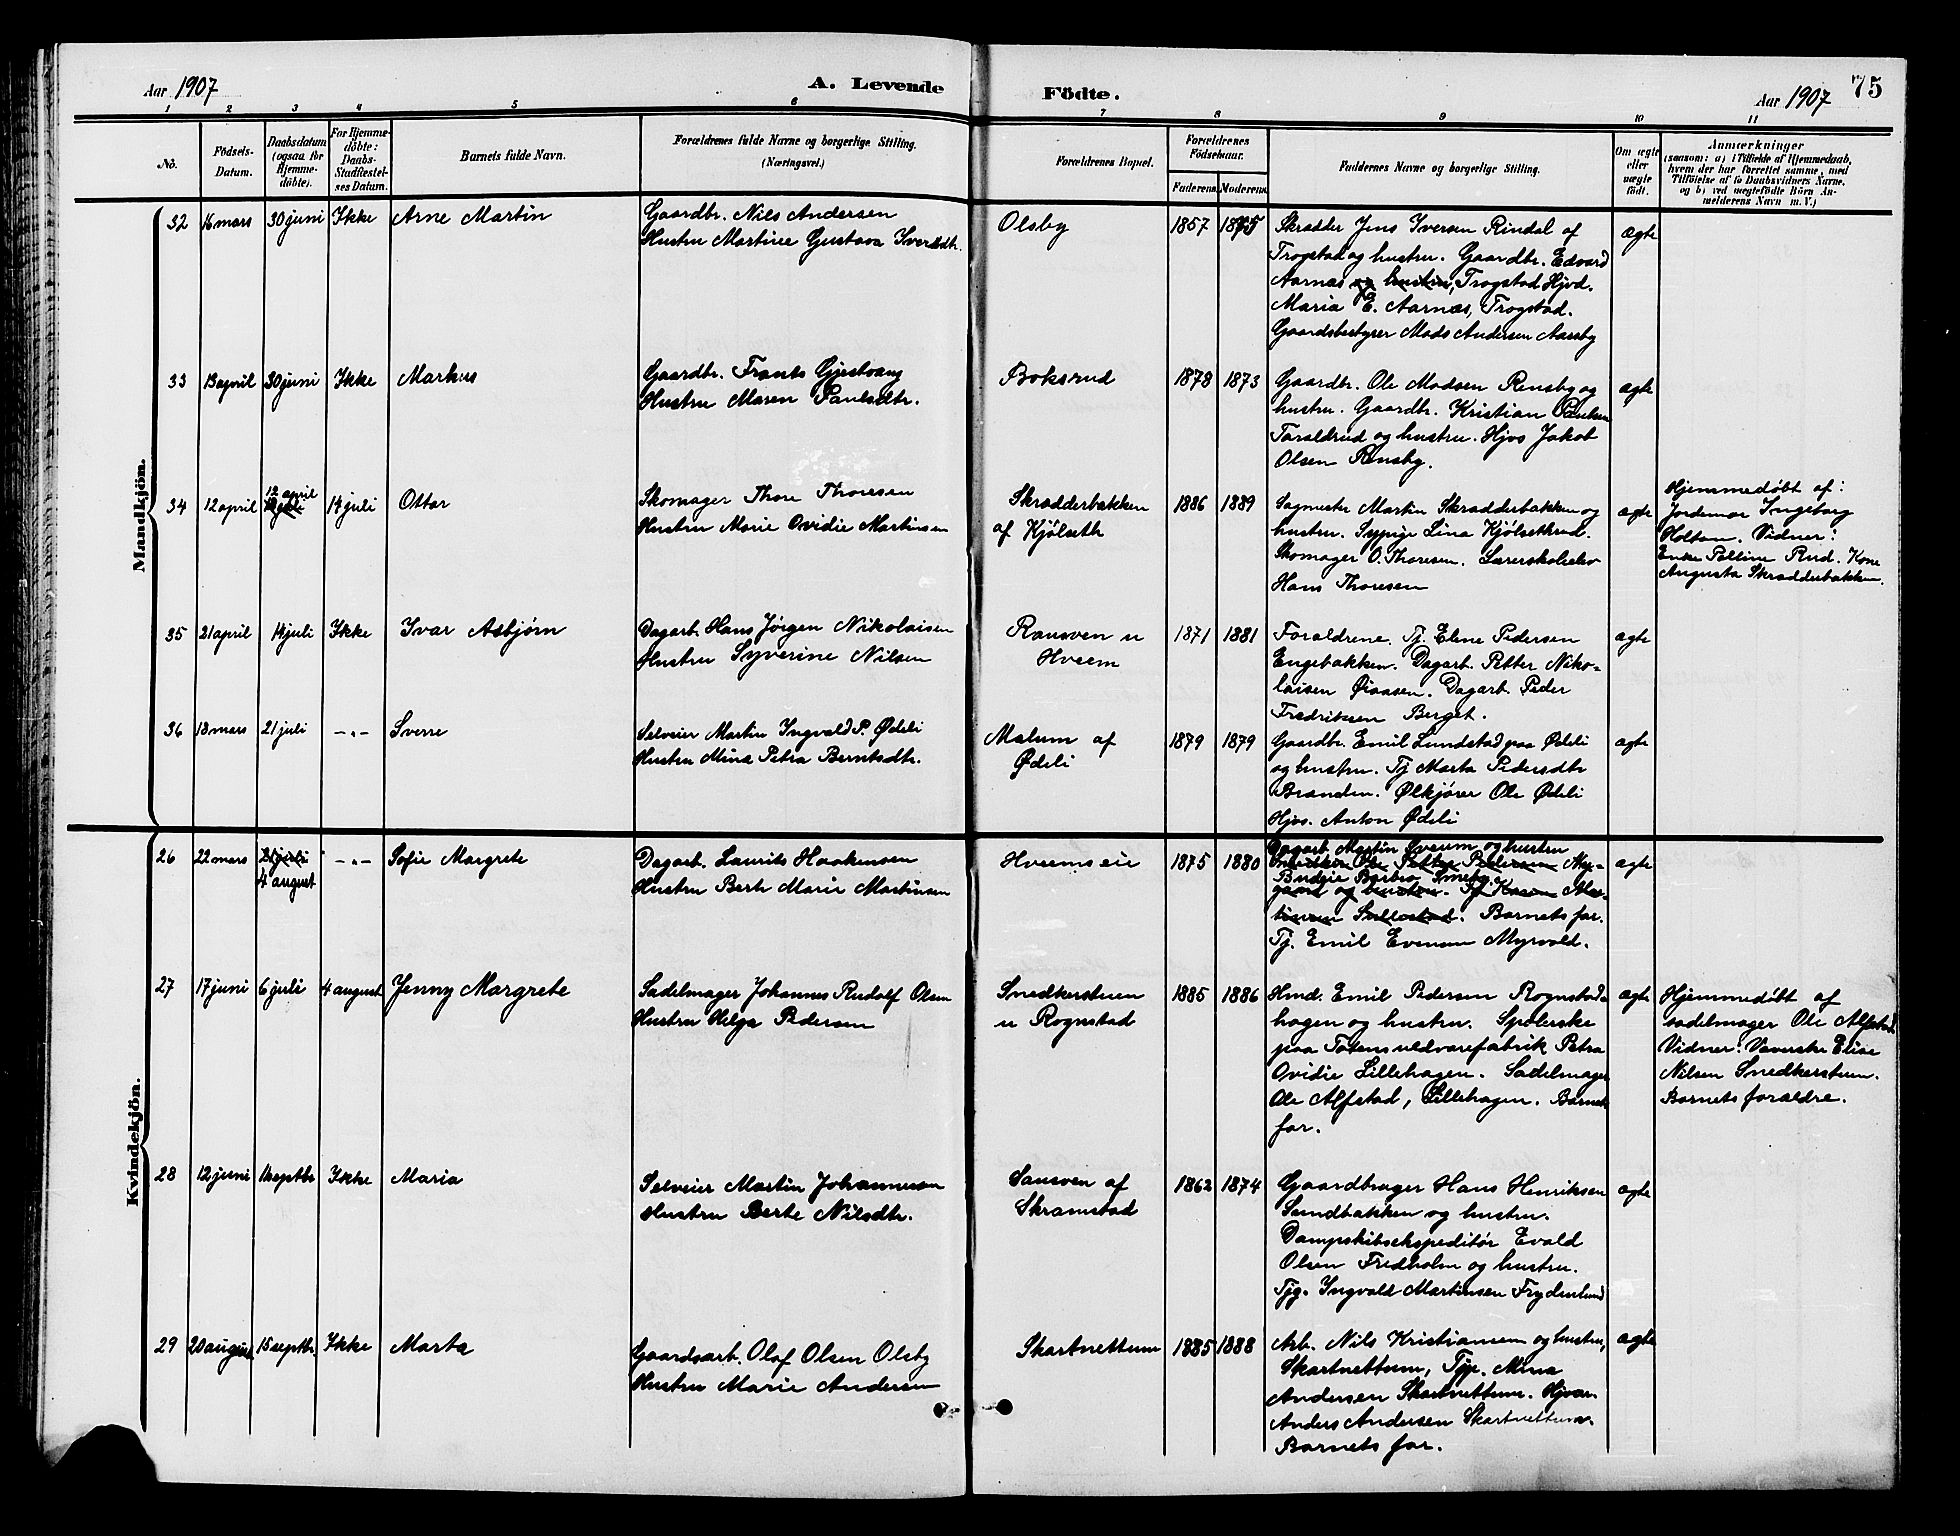 Aar 1907
A. Levende
Födte.
Aar 1907
75
1 2 3 4 5 6 7 8 9 10 11
No.
Födsels-
Datum.
Daabsdatum
(ogsaa for
Hjemme-
döbte).
For Hjemme-
döbte:
Daabs-
Stadfæstel-
ses Datum.
Barnets fulde Navn.
Forældrenes fulde Navne og borgerlige Stilling.
(Næringsvei.)
Forældrenes Bopæl.
Forældrenes
Födselsaar.
Faderens. Moderens.
Faddernes Navne og borgerlige Stilling.
Om ægte
eller
uægte
födt.
Anmærkninger
(saasom: a) i Tilfælde af Hjemmedaab,
hvem der har forrettet samme, med
Tilföielse af to Daabsvidners Navne,
og b) ved uægtefödte Börn An-
melderens Navn m. V.)
Mandkjön.
32 16 mars 30 juni Ikke Arne Martin
Gaardbr. Nils Andersen
Hustru Martine Gustava Iversdtr.
Olsby
1857 1875
Skrædder Jens Iversen Rindal af
Trogstad og hustru. Gaardbr. Edvard
Aarnæs og hustru, Trogstad Hjvd.
Maria E. Aarnæs, Trogstad.
Gaardsbestyrer Mads Andersen Aassby
ægte
33 13 april 30 juni Ikke Markus
Gaardbr. Frants Gjestvang
Hustru Maren Paulsdtr.
Boksrud
1878 1873
Gaardbr. Ole Madsen Rensby og
hustru. Gaardbr. Kristian Paulsen
Taraldrud og hustru. Hjvs Jakob
Olsen Rensby.
ægte
34 12 april 12 april 14 juli Ottar
Skomager Thore Thoresen
Hustru Marie Ovidie Martinsen
Skrædderbakken
af Kjölseth
1886 1889
Sagmester Martin Skrædderbakken og
hustru. Sypige Lina Kjölsethrud.
Skomager O. Thoresen. Lærerskoleelev
Hans Thoresen
ægte
Hjemmedøbt af:
Jordemor Ingeborg
Holton. Vidner:
Enke Pelline Rud. Kone
Augusta Skrædderbakken.
35 21 april 14 juli Ikke Ivar Asbjørn
Dagarb. Hans Jörgen Nikolaisen
Hustru Syverine Nilsen
Rausven u
Hveem
1871 1881
Forældrene. Tj. Eline Pedersen
Engebakken. Dagarb. Petter Niko-
laisen Øiaasen. Dagarb. Peder
Fredriksen Berget.
ægte
36 13 mars 21 juli -"- Sverre
Selveier Martin Ingvald P. Ødeli
Hustru Mina Petra Berntsdtr.
Malum af
Ødeli
1879 1879
Gaardbr. Emil Lundstad paa Ødeli
og hustru. Tj Marta Pedersdtr
Brænden. Ølkjører Ole Ødeli
Hjvs. Anton Ødeli
ægte
Kvindekjön.
26 22 mars 21 juli -"- Sofie Margrete
4 august
Dagarb. Laurits Haakensen
Hustru Berte Marie Martinsen
Hveemseie
1875 1880
Dagarb. Martin Sveum og hustru
Snedker Ole Petter Pedersen Myr-
Budeie Barbro Smeby.
gaard og hustru. Tj Karen Mar-
tinsen Sillestad. Barnets far.
Tj. Emil Evensen Myrvold.
ægte
27 17 juni 6 juli 4 august Jenny Margrete
Sadelmager Johannes Rudolf Olsen
Hustru Helga Pedersen
Snedkerstuen
u Rognstad
1885 1886
Hmd. Emil Pedersen Rognstad-
hagen og hustru. Spolerske
paa Totens uldvarefabrik Petra
Ovidie Lillehagen. Sadelmager
Ole Alfstad, Lillehagen. Barnets
far.
ægte
Hjemmedøbt af
sadelmager Ole Alfstad
Vidner: Væverske Elise
Nilsen Snedkerstuen.
Barnets forældre.
28 12 juni 1 septbr Ikke Maria
Selveier Martin Johannesen
Hustru Berte Nilsdtr.
Sansven af
Skramstad
1862 1874
Gaardbruger Hans Henriksen
Sundbakken og hustru.
Dampskibsekspeditör Evald
Olsen Fredholm og hustru.
Tjg. Ingvald Martinsen Frydenlund
ægte
29 20 august 15 septbr. Ikke Marta
Gaardsarb. Olaf Olsen Olsby
Hustru Marie Andersen
Skartnettum
1885 1888
Arb. Nils Kristiansen og hustru,
Skartnettum, Tjp. Mina
Andersen Skartnettum. Hjvær.
Anders Andersen Skartnettum.
Barnets far.
ægte